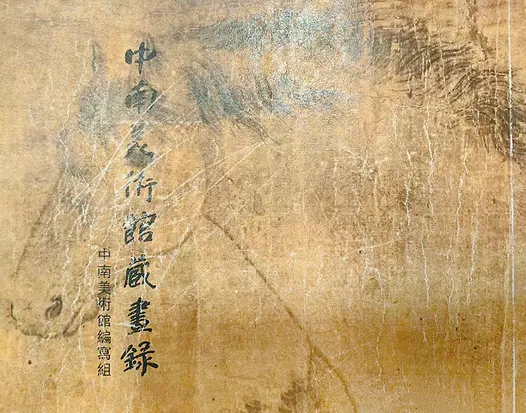 中南美術館藏畫錄
中南美術館編寫組